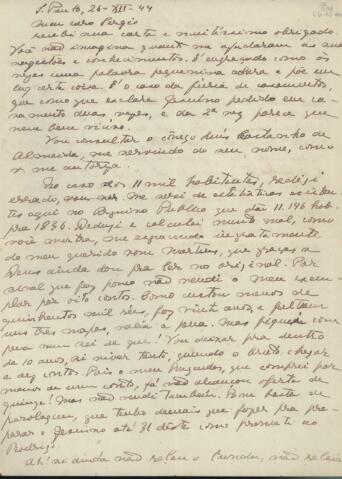 S. Paulo, 26-XII-44
Meu caro Sergio
recebi sua carta e muitíssimo obrigado.
Você não imagina quanto me ajudaram as suas
sugestões e conhecimentos. É engraçado como às
vezes uma palavra pequenina aclara e põe em
luz certa coisa. É o caso da fieira de casamentos,
que como que esclare Jesuino pedido em ca-
samento duas vezes, e da 2ª vez parece que
nem bem viuvo.
Vou consultar o conego Luis Castanho de
Almeida, me servindo do seu nome, como
v. me autoriza.
No caso dos 11 mil habitantes, redigi
errado, me servi de estatisticas existen-
tes aqui no Arquivo Publico que dão 11.146 hab
pra 1836. Deduzi e calculei muito mal, como
você mostra, me esquecendo ingratamente
do meu querido von Martius, que graças a
Deus ainda dou pra ler no original. Por
sinal que por pouco não vendi o meu exem-
plar por oito contos. Como custou menos de
quinhentos mil réis, faz vinte anos, e faltam
uns tres mapas, valia a pena. Mas fiquei com
pena nem sei de que! Vou deixar pra dentro
de 10 anos, si viver tanto, quando o Brasil chegar
a dez contos. Pois o meu Rugendas, que comprei por
menos de um conto, já não alcançou oferta de
quinze! Mas não vendi tambem. Bem, basta de
parolagem, que tenho demais que fazer pra pre-
parar o Jesuino até 31 deste como prometi ao
Rodrigo.
Ah! si ainda não saiu o não